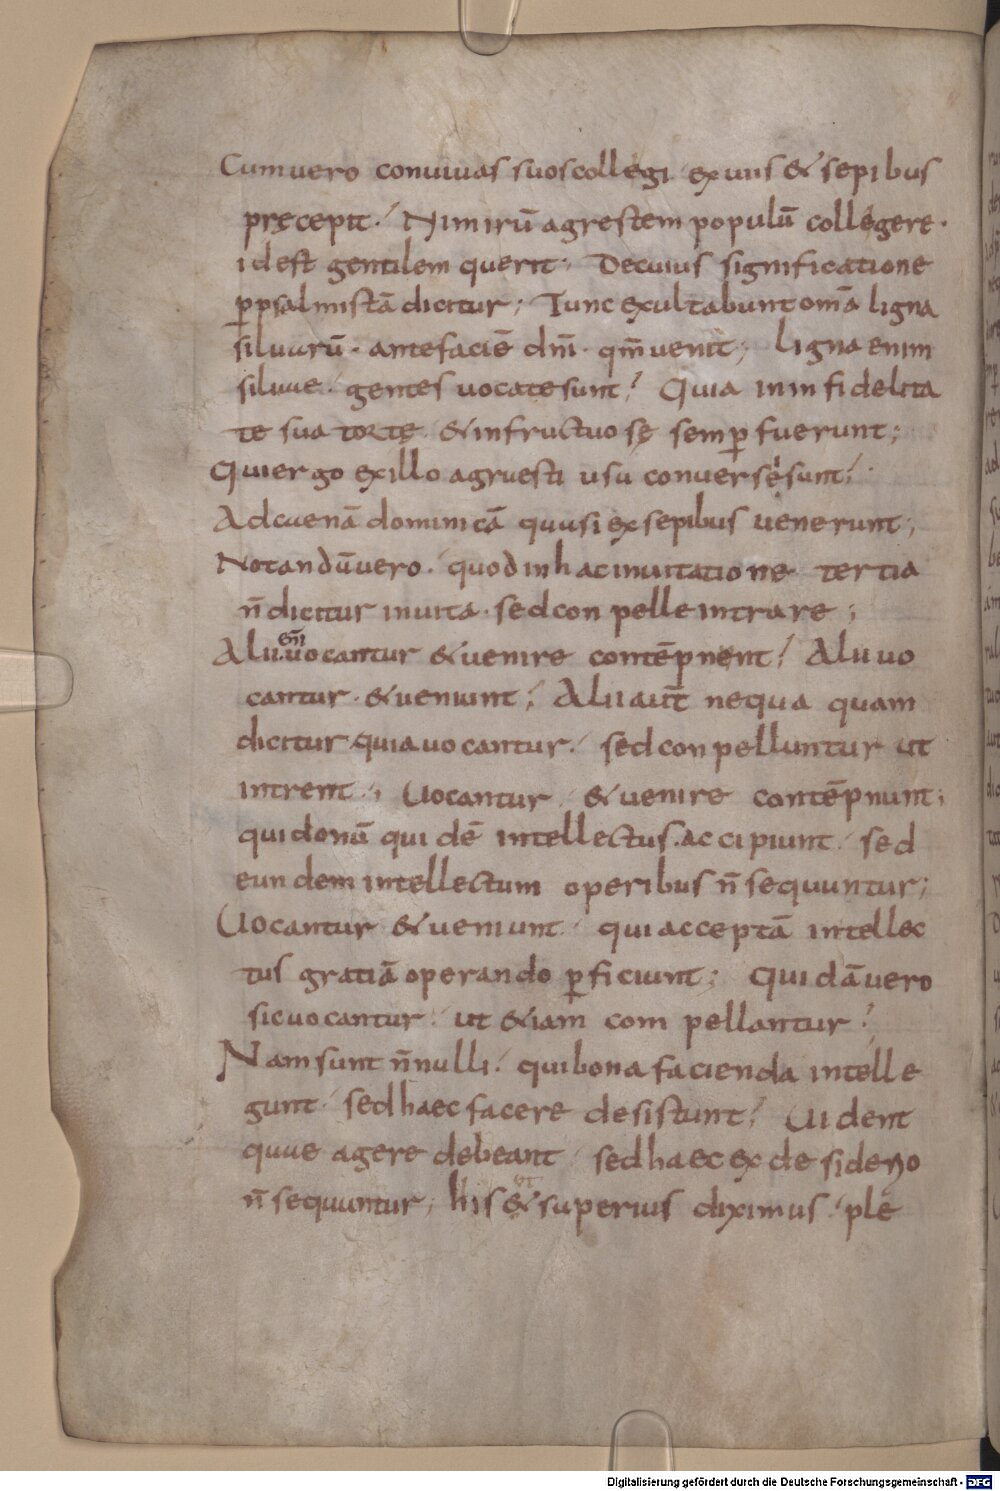 Cum vero conuiuas suos collegi ex uiis & sepibus
pręcepit. Nimirū agrestem populū collegere.
id est gentilem querit. De cuius significatione
p̱ psalmistā dicitur; Tunc exultabunt om̄a ligna
siluarū. ante faciē dn̄i. qm̄ uenit; Ligna enim
siluae. gentes uocate sunt; Quia in infidelita
te sua tortę. & infructuosę semp̱ fuerunt;
Qui ergo ex illo agruesti usu conuersę sunt;
Ad cuenā dominicā quasi ex sepibus uenerunt;
Notandū vero. quod in hac inuitatione tertia
n̄ dicitur inuita. sed conpelle intrare;
Alii en̄i uocantur & uenire contēpnent; Alii uo
cantur. & ueniunt; Alii aūt nequaquam
dicitur quia uocantur. sed conpelluntur ut
intrent.; Uocantur & uenire contēpnunt;
qui donū quidē intellectus accipiunt. sed
eundem intellectum operibus n̄ sequuntur;
Uocantur & ueniunt. qui acceptā intellec
tus gratiā operando p̱ficiunt; Quidā vero
sic uocantur. ut &iam compellantur;
Nam sunt n̄nulli. qui bona facienda intelle
gunt. sed haec facere desistunt; Uident
quae agere debeant. sed haec ex desiderio
n̄ sequuntur; his & ut superius diximus. ple
Digitalisierung gefördert durch die Deutsche Forschungsgemeinschaft - DFG